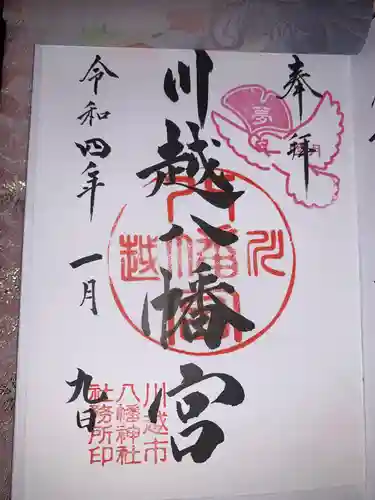 奉拝
川越八幡宮
令和四年
一月
九日
夢
川越
八幡宮
川越市
八幡神社
社務所印